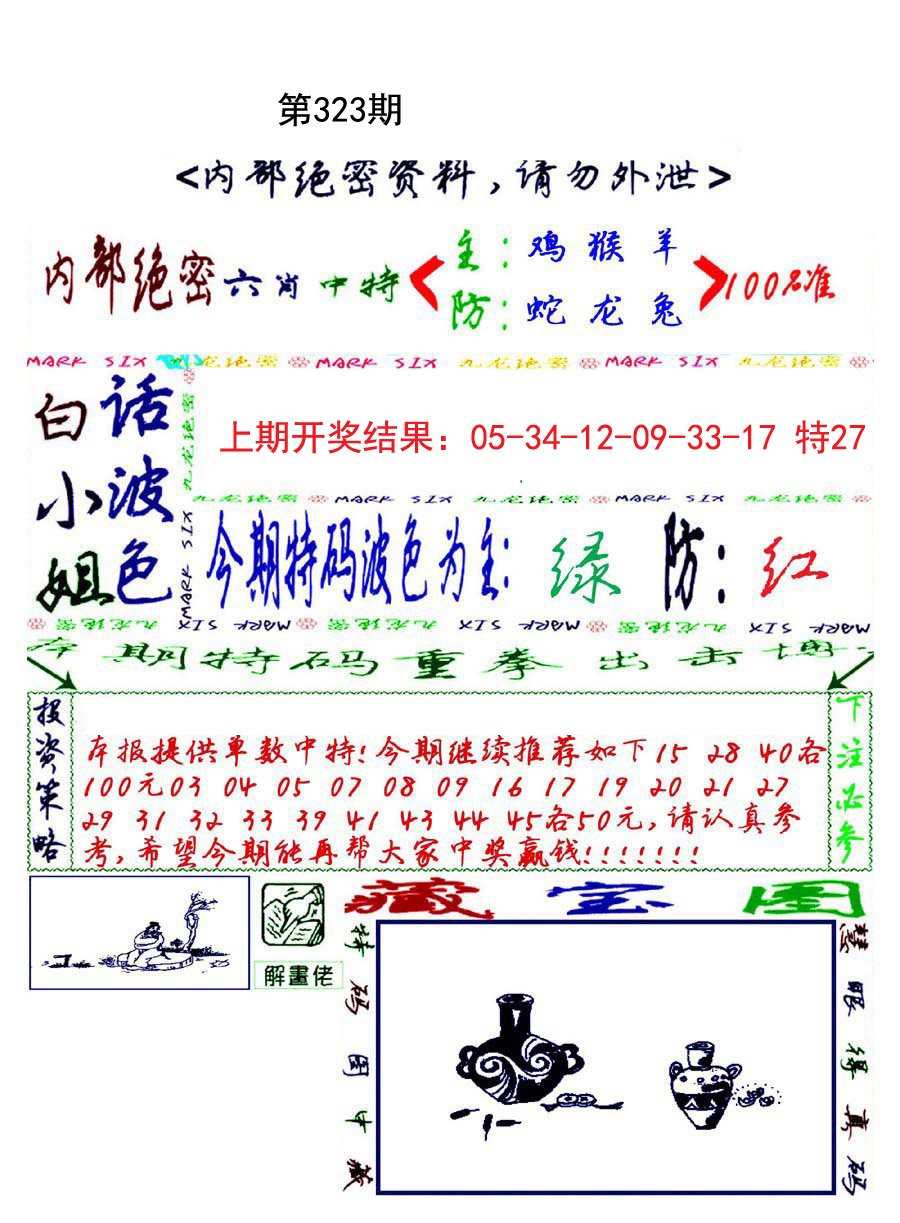 第323期
<内部绝密资料,请勿外泄>
内部绝密六肖中特
主:鸡猴羊
防:蛇龙兔
100%准
MARK SIX 九龙绝密 MARK SIX 九龙绝密 MARK SIX 九龙绝密
白小姐
话波色
九龙绝密
MARK SIX
上期开奖结果：05-34-12-09-33-17 特27
九龙绝密 MARK SIX 九龙绝密 MARK SIX 九龙绝密
今期特码波色为主:绿 防:红
九龙绝密 MARK SIX 九龙绝密 MARK SIX 九龙绝密 MARK SIX
本期特码重拳出击博
投资策略
本报提供单数中特!今期继续推荐如下15 28 40各
100元03 04 05 07 08 09 16 17 19 20 21 27
29 31 32 33 39 41 43 44 45各50元,请认真参
考,希望今期能再帮大家中奖赢钱!!!!!!!
下注必参
解畫佬
藏宝图
特码图中藏
慧眼得真码